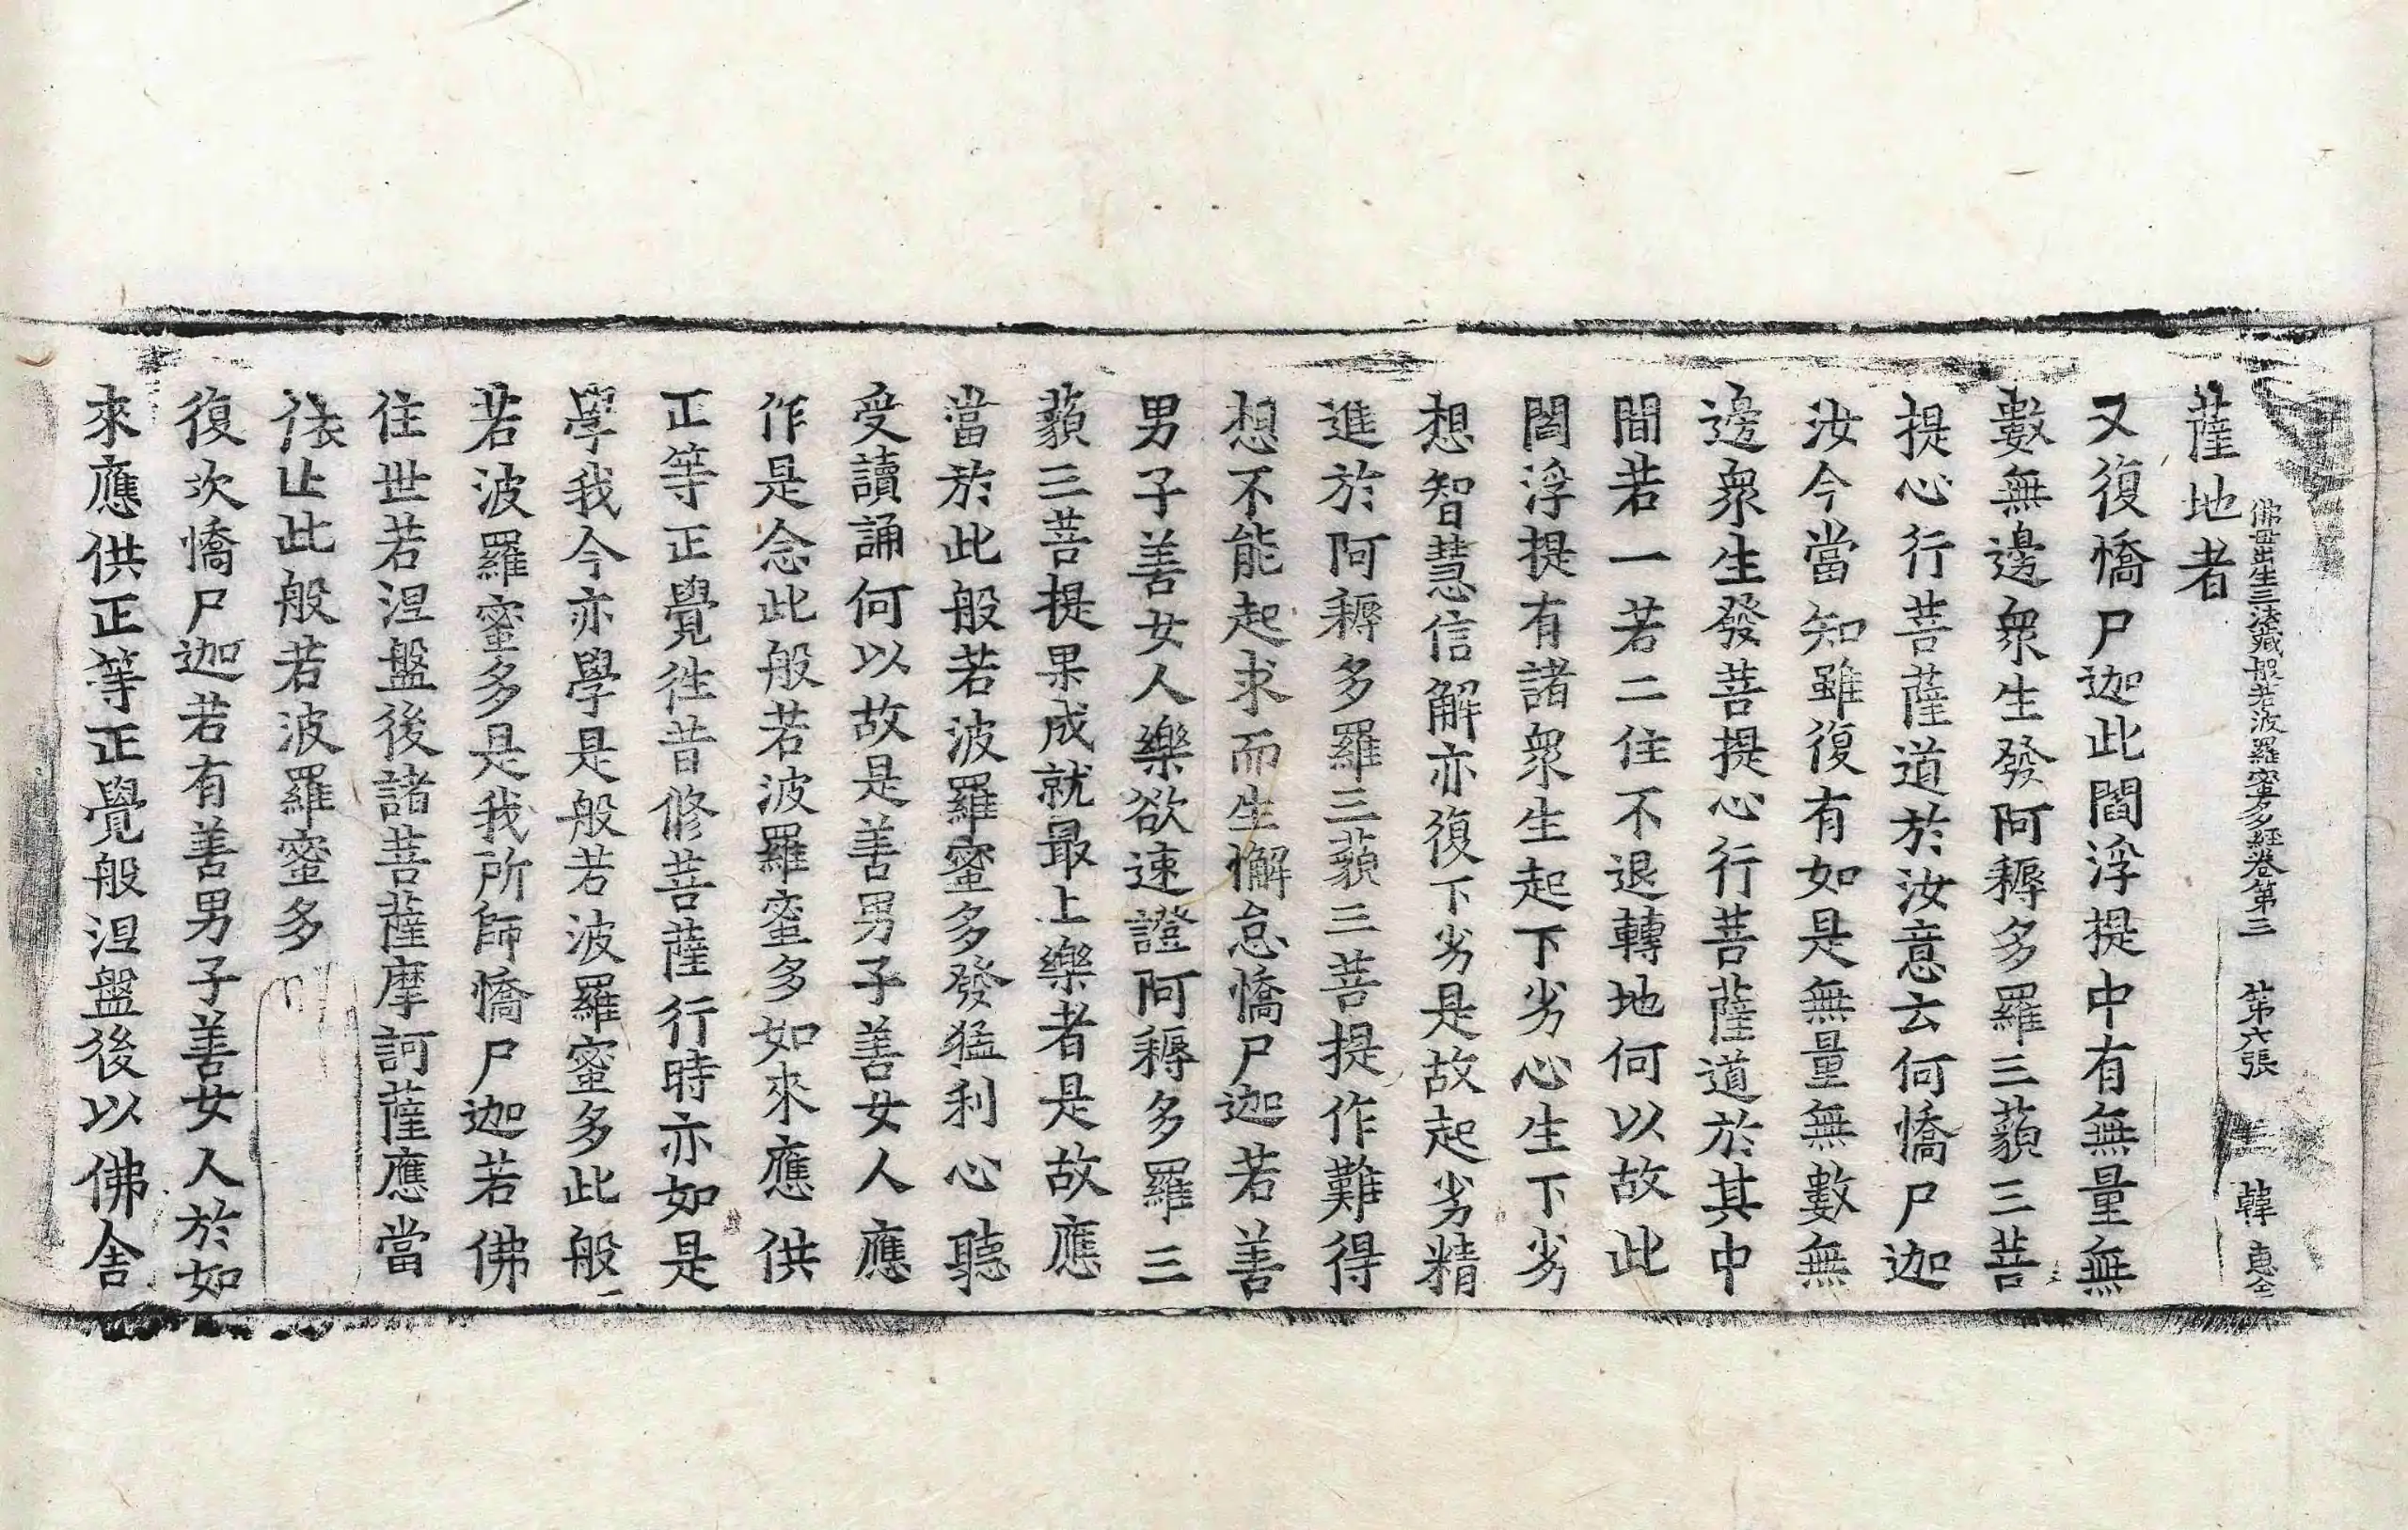 佛母出生三法藏般若波羅蜜多經卷第三 第六張 韓惠全
薩地者
又復憍尸迦此閻浮提中有無量無
數無邊衆生發阿耨多羅三藐三菩
提心行菩薩道於汝意云何憍尸迦
汝今當知雖復有如是無量無數無
邊衆生發菩提心行菩薩道於其中
間若一若二住不退轉地何以故此
閻浮提有諸衆生起下劣心生下劣
想智慧信解亦復下劣是故起劣精
進於阿耨多羅三藐三菩提作難得
想不能起求而生懈怠憍尸迦若善
男子善女人樂欲速證阿耨多羅三
藐三菩提果成就最上樂者是故應
當於此般若波羅蜜多發猛利心聽
受讀誦何以故是善男子善女人應
作是念此般若波羅蜜多如來應供
正等正覺往昔修菩薩行時亦如是
學我今亦學是般若波羅蜜多此般
若波羅蜜多是我所師憍尸迦若佛
住世若涅盤後諸菩薩摩訶薩應當
依止此般若波羅蜜多
復次憍尸迦若有善男子善女人於如
來應供正等正覺般涅盤後以佛舍